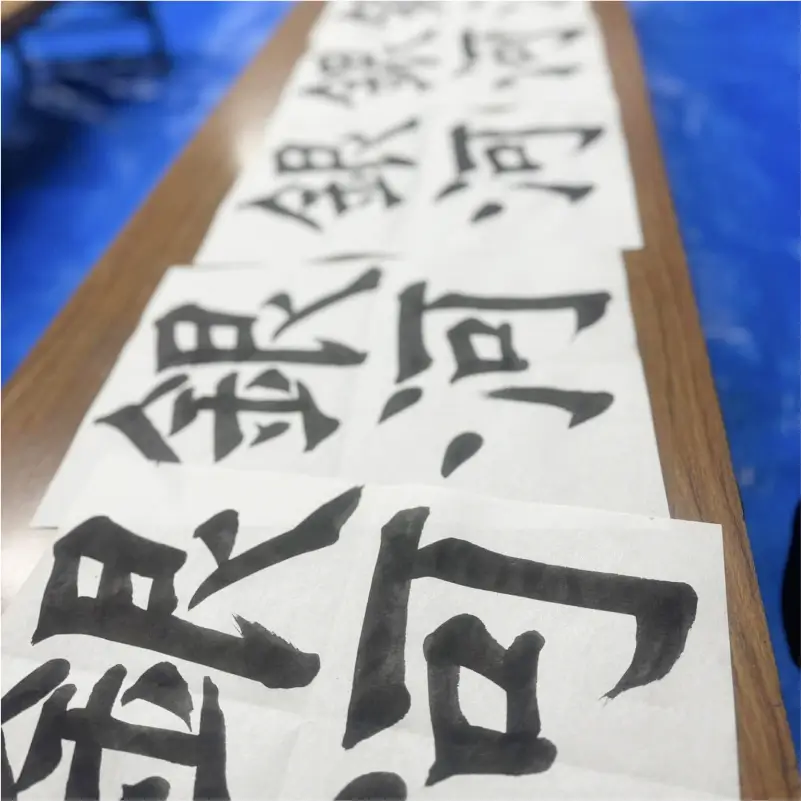 銀河
銀河
銀河
銀河